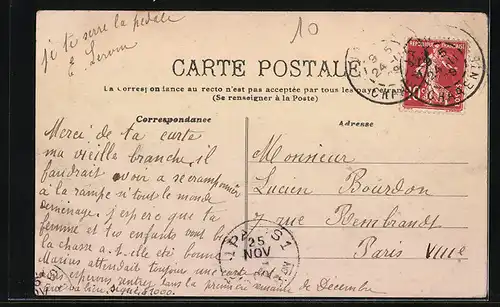 je te serre la pédale
E. Servin
10
RÉPUBLIQUE FRANÇAISE
10
CARTE POSTALE
La Correspondance au recto n'est pas acceptée par tous les pays étrangers
(Se renseigner à la Poste)
Correspondance
Adresse
Merci de ta carte
ma vieille branche, il
faudrait voir a se cramponner
à la rampe si tout le monde
déménage. J'espère que ta
femme et tes enfants vont bien
la chasse a t-elle été bonne
Marius attendait toujours une carte de toi
nous espérons rentrer dans la première semaine de Décembre
Monsieur
Lucien Bourdon
7 rue Rembrandt
Paris VIIIe
PARIS
25
NOV